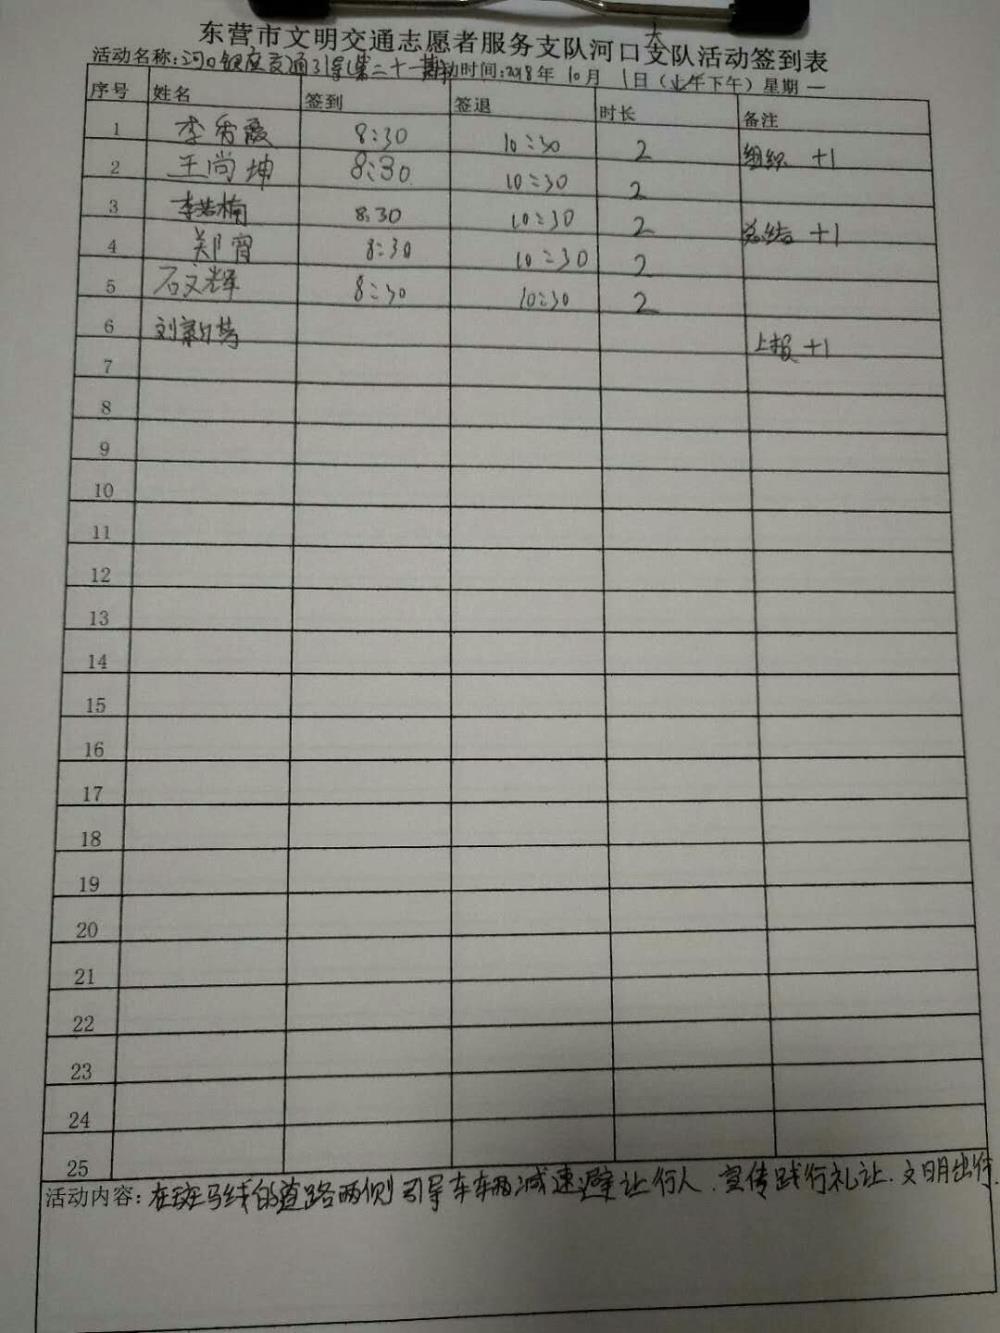 东营市文明交通志愿者服务支队河口支队活动签到表
大
活动名称:河口银座交通引导(第二十一期)活动时间:2018年10月1日(上午下午)星期一
序号 姓名 签到 签退 时长 备注
1 李秀霞 8:30 10:30 2 组织 +1
2 王尚坤 8:30 10:30 2
3 李若楠 8:30 10:30 2 总结 +1
4 郑宵 8:30 10:30 2
5 石文辉 8:30 10:30 2
6 刘新芳 上报 +1
7
8
9
10
11
12
13
14
15
16
17
18
19
20
21
22
23
24
25
活动内容:在斑马线的道路两侧引导车辆减速避让行人.宣传践行礼让.文明出行.